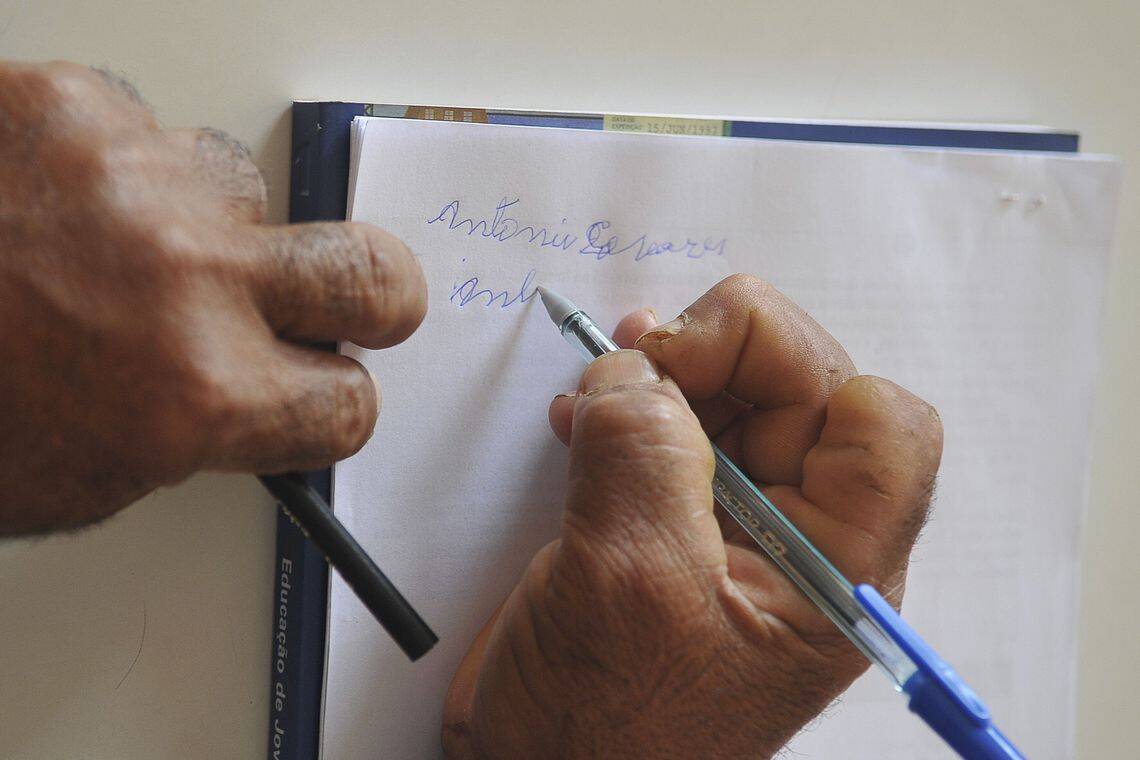 DATA DE
EXPEDIÇÃO 15/JUN/1992
Antonio
Ant
FACTOR
Educação de Jov